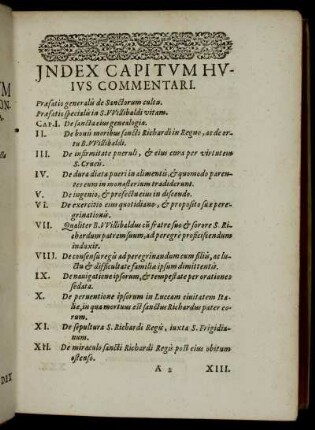 JNDEX CAPITVM HV-
IVS COMMENTARI.
Præfatio generalis de Sanctorum cultu.
Præfatio specialis in S. VVillibaldi vitam.
CAP. I. De sancta eius genealogia.
II. De bonis moribus sancti Richardi in Regno, ac de or-
tu B. VVillibaldi.
III. De infirmitate pueruli, & eius cura per virtutem
S. Crucis.
IV. De dura dicta pueri in alimentis, & quomodo paren-
tes eum in monasterium tradiderunt.
V. De ingenio, & profectu eius in discendo.
VI. De exercitio eius quotidiano, & proposito suæ pere-
grinationis.
VII. Qualiter B. VVillibaldus cũ fratre suo & sorore S. Ri-
chardum patrem suum, ad peregre proficiscendum
induxit.
VIII. De consensu regis ad peregrinandum cum filiis, ac lu-
ctu & difficultate familiæ ipsum dimittentis.
IX. De nauigatione ipsorum, & tempestate per orationes
sedata.
X. De peruentione ipsorum in Lucam ciuitatem Ita-
liæ, in qua mortuus est sanctus Richardus pater eo-
rum.
XI. De sepultura S. Richardi Regis, iuxta S. Frigidia-
num.
XII. De miraculo sancti Richardi Regis post eius obitum
ostenso.
A 2 XIII.
VM
ON
DEX